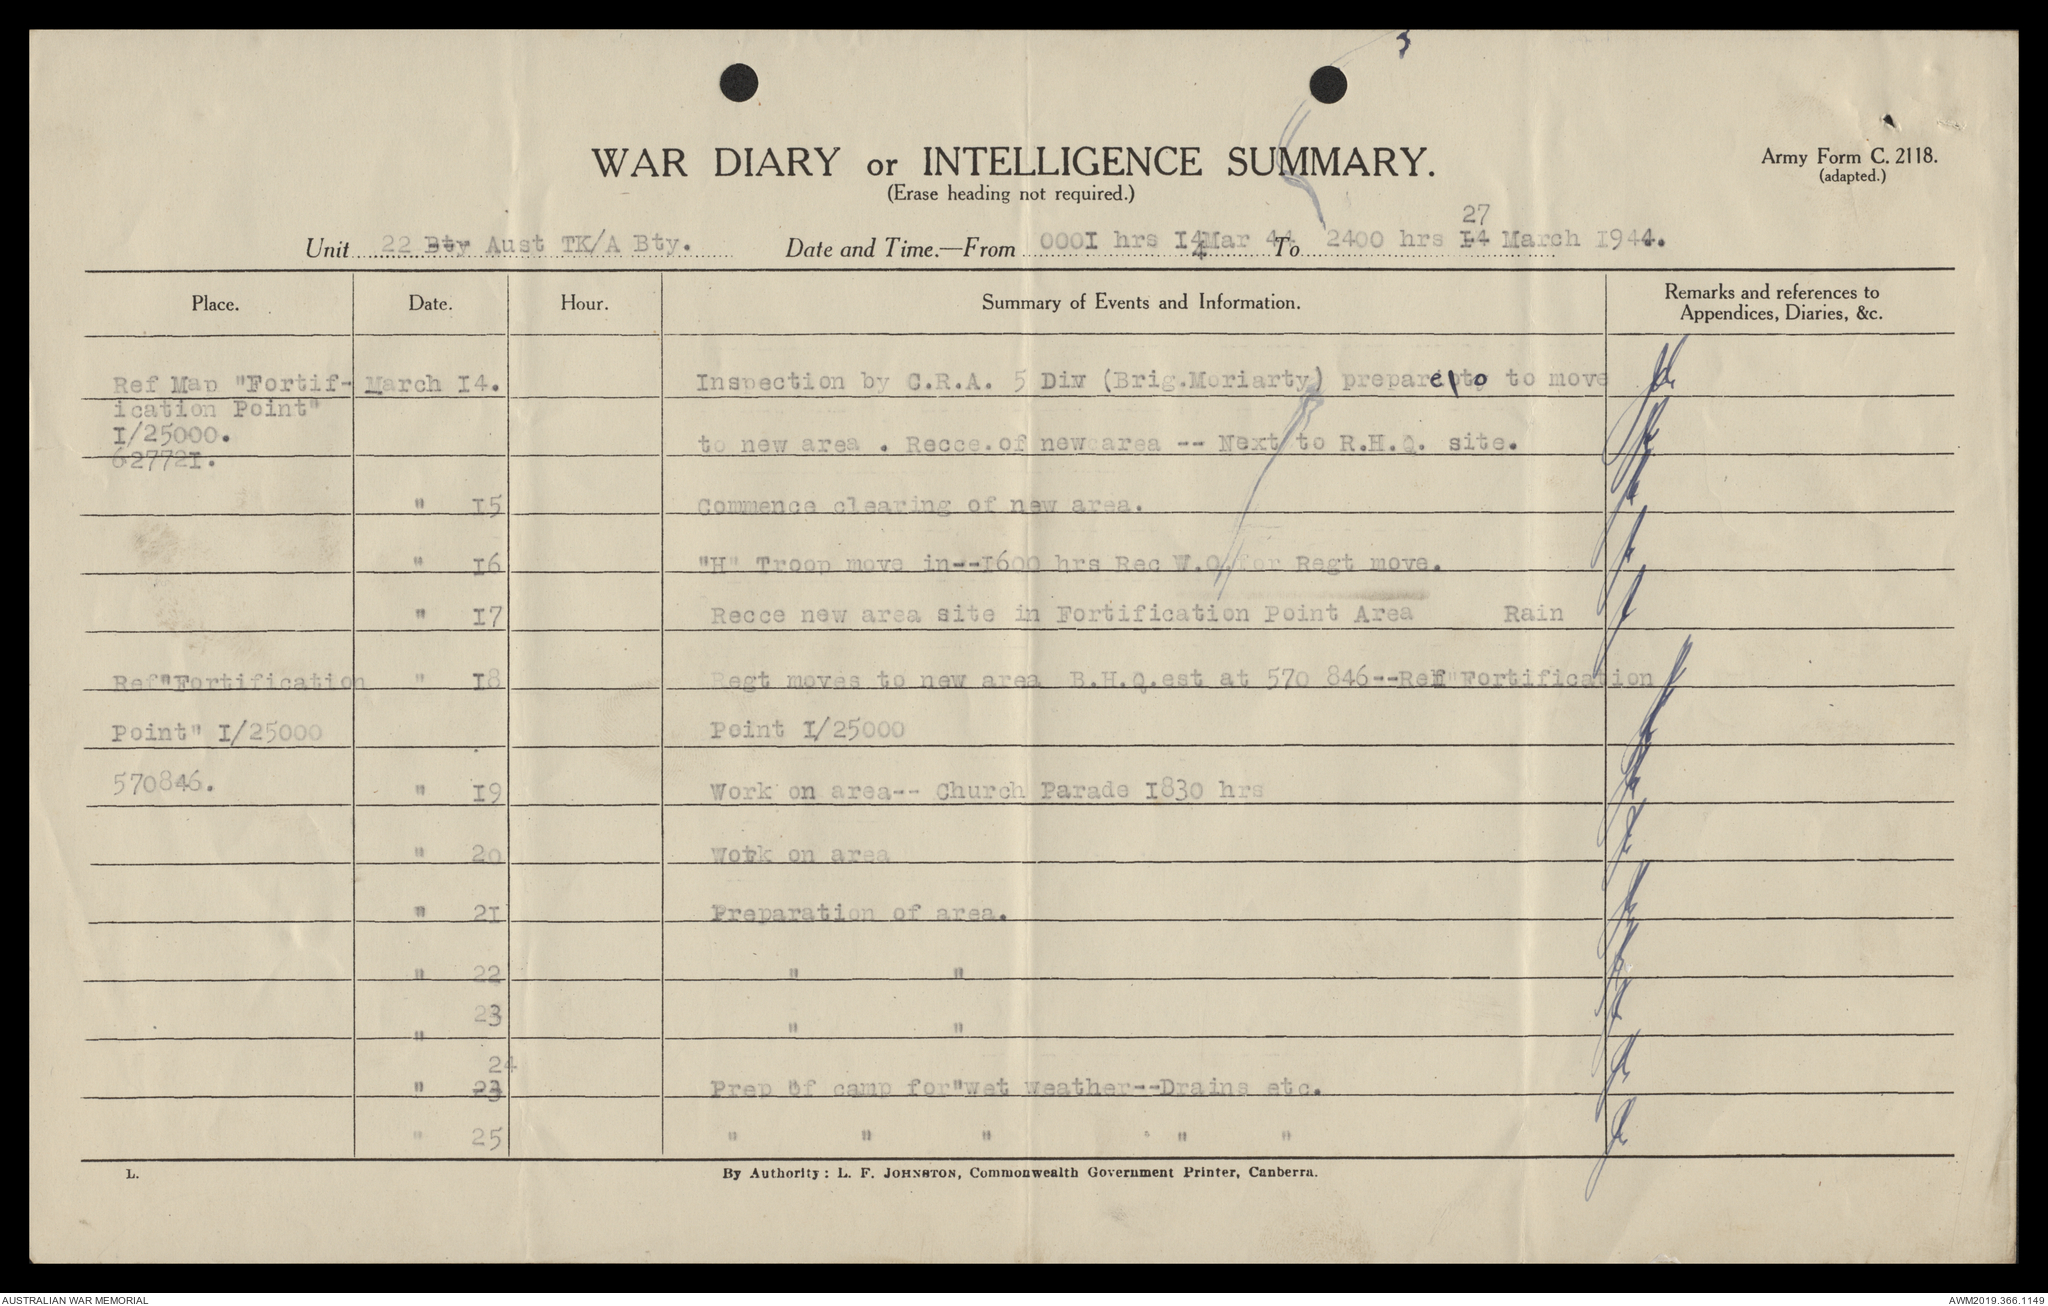 3
WAR DIARY or INTELLIGENCE SUMMARY.
Army Form C. 2118.
(Erase heading not required.)
(adapted.)
27
Unit 22 Bty Aust TK/A Bty. Date and Time.—From 000I hrs I4 Mar 44 To 2400 hrs I4 March I944.
4
Place. Date. Hour. Summary of Events and Information. Remarks and references to
Appendices, Diaries, &c.
Ref Map "Fortif- March I4. Inspection by C.R.A. 5 Div (Brig.Moriarty) prepare to to move
ication Point"
I/25000. to new area . Recce.of new area -- Next to R.H.Q. site.
62772I.
" I5 Commence clearing of new area.
" I6 "H" Troop move in--I600 hrs Rec W.O. for Regt move.
" I7 Recce new area site in Fortification Point Area Rain
Ref"Fortification " I8 Regt moves to new area B.H.Q.est at 570 846--Ref"Fortification
Point" I/25000 Point I/25000
570846. " I9 Work on area-- Church Parade I830 hrs
" 20 Work on area
" 2I Preparation of area.
" 22 " "
" 23 " "
24
" 23 Prep of camp for wet weather--Drains etc.
" 25 " " " " "
L. By Authority: L. F. JOHNSTON, Commonwealth Government Printer, Canberra.
AUSTRALIAN WAR MEMORIAL AWM2019.366.1149